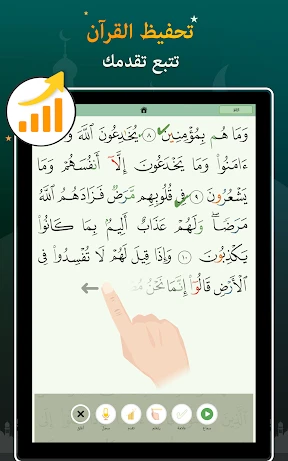 تحفيظ القرآن
تتبع تقدمك
وَمَا هُم بِمُؤْمِنِينَ ٨ يُخَٰدِعُونَ ٱللَّهَ وَ
ءَامَنُوا۟ وَمَا يَخْدَعُونَ إِلَّآ أَنفُسَهُمْ وَمَا
يَشْعُرُونَ ٩ فِى قُلُوبِهِم مَّرَضٌ فَزَادَهُمُ ٱللَّهُ
مَرَضًا ۖ وَلَهُمْ عَذَابٌ أَلِيمٌۢ بِمَا كَانُوا۟
يَكْذِبُونَ ١٠ وَإِذَا قِيلَ لَهُمْ لَا تُفْسِدُوا۟ فِى
ٱلْأَرْضِ قَالُوٓا۟ إِنَّمَا نَحْنُ